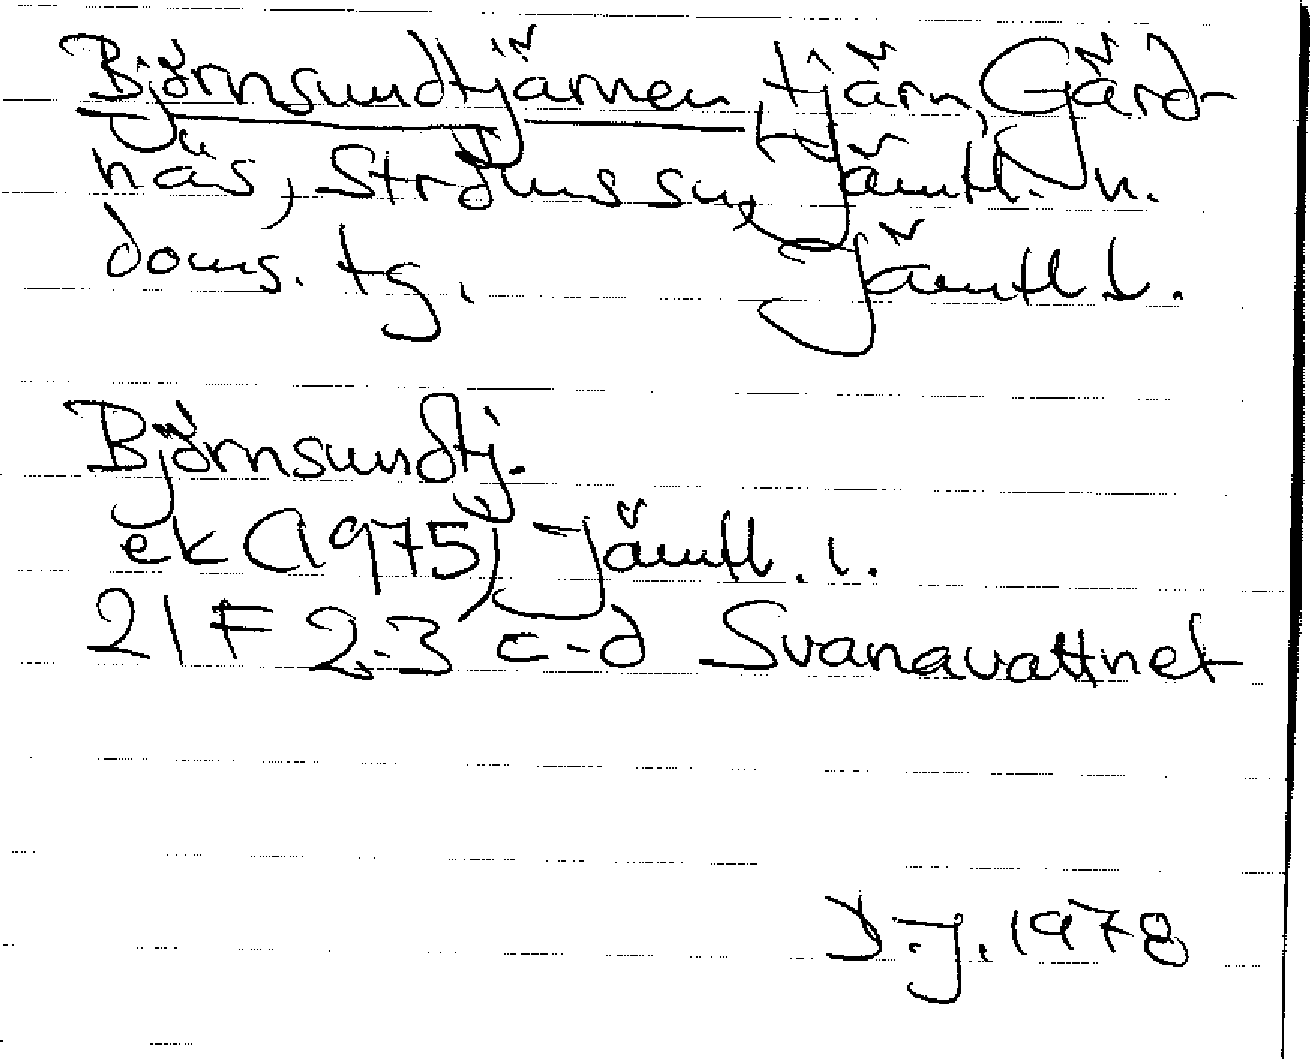 Björnsundtjärnen, tjärn, Gärd-
näs, Ströms sn, Jämtl. n.
doms. tg. Jämtl l.
Björnsundtj.
ek (1975) Jämtl. l.
21 F 2-3 c-d Svanavattnet
D.J. 1978